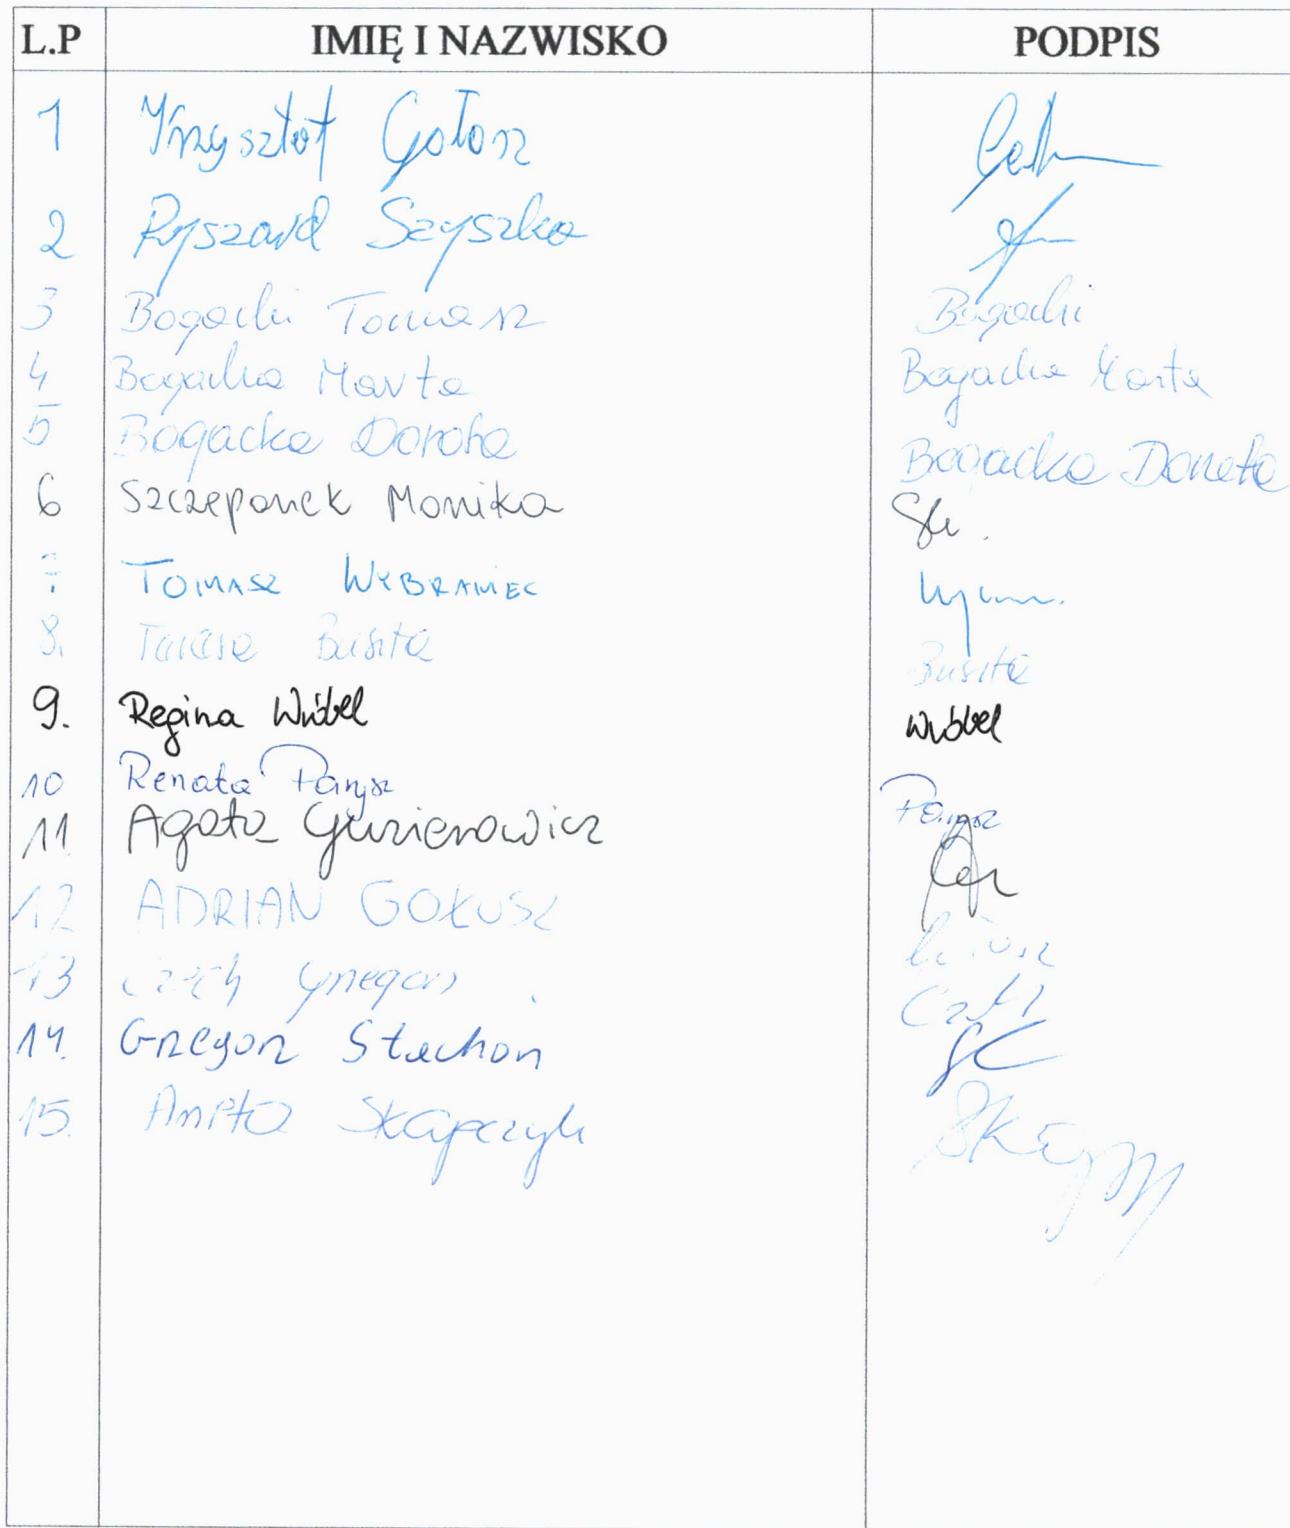 L.P IMIĘ I NAZWISKO PODPIS
1 Krzysztof Gołosz
2 Ryszard Szyszka
3 Bogacki Tomasz Bogacki
4 Bogacka Marta Bogacka Marta
5 Bogacka Dorota Bogacka Dorota
6 Szczepanek Monika
7 TOMASZ WYBRANIEC
8. Busita Busita
9. Regina Wróbel Wróbel
10 Renata Parysz Parysz
11 Agata
12 ADRIAN GOŁUSZ
13 Czech Grzegorz
14. Grzegorz Stachoń
15. Anita Skapczyk